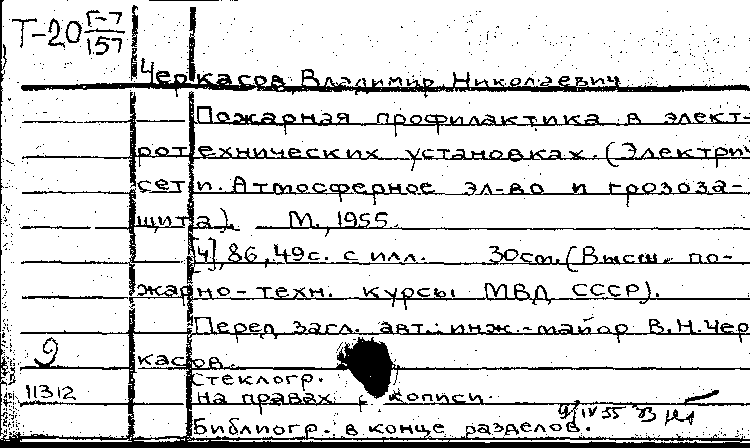 Т-20 Г-7
157
Черкасов, Владимир Николаевич
Пожарная профилактика в элект-
ротехнических установках. (Электрич
сети. Атмосферное эл-во и грозоза-
щита). М., 1955.
[4], 86, 49с. с илл. 30см. (Высш. по-
жарно-техн. курсы МВД СССР).
Перед загл. авт.: инж.-майор В.Н. Чер
9 касов.
Стеклогр.
11312 На правах
Библиогр. в конце разделов.